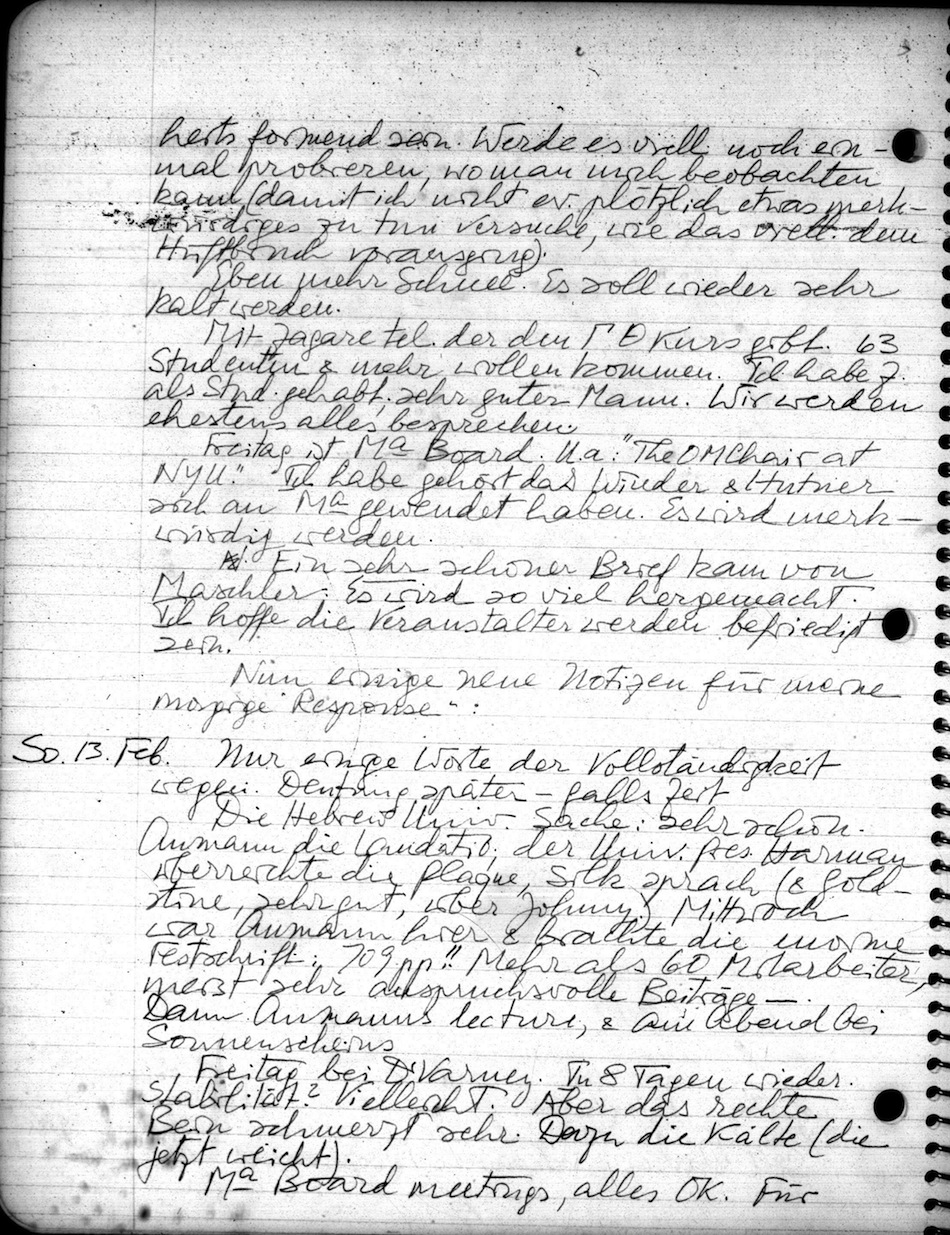 heits formend sein. Werde es viell. noch ein-
mal probieren, wo man mich beobachten
kann (damit ich nicht ev. plötzlich etwas merk-
würdiges zu tun versuche, wie das viell. dem
Hüftbruch vorausging).
Eben mehr Schnee. Es soll wieder sehr
kalt werden.
Mit Zagare tel. der den Γ Θ Kurs gibt. 63
Studenten & mehr wollen kommen. Ich habe Z.
als Stud. gehabt, sehr guter Mann. Wir werden
ehestens alles besprechen.
Freitag ist Ma Board. U.a. "The OM Chair at
NYU." Ich habe gehört das Winder & Hutner
sich an Ma gewendet haben. Es wird merk-
würdig werden.
Ein sehr schöner Brief kam von
Maschler. Es wird so viel hergemacht.
Ich hoffe die Veranstalter werden befriedigt
sein.
Nun einige neue Notizen für meine
"Response":
So. 13. Feb. Nur einige Worte der Vollständigkeit
wegen. Deutung später – falls Zeit
Die Hebrew Univ. Sache: sehr schön.
Aumann die Laudatio, der Univ. Pres. Harman
überreichte die plaque, Silk sprach (& Gold-
stine, sehr gut, über Johnny.) Mittwoch
war Aumann hier & brachte die enorme
Festschrift: 709 pp!! Mehr als 60 Mitarbeiter,
meist sehr anspruchsvolle Beiträge –.
Dann Aumanns lecture, & am Abend bei
Sonnenscheins
Freitag bei Dr Varney. In 8 Tagen wieder.
Stabilität? Vielleicht. Aber das rechte
Bein schmerzt sehr. Dazu die Kälte (die
jetzt weicht).
Ma Board meetings, alles OK. Für